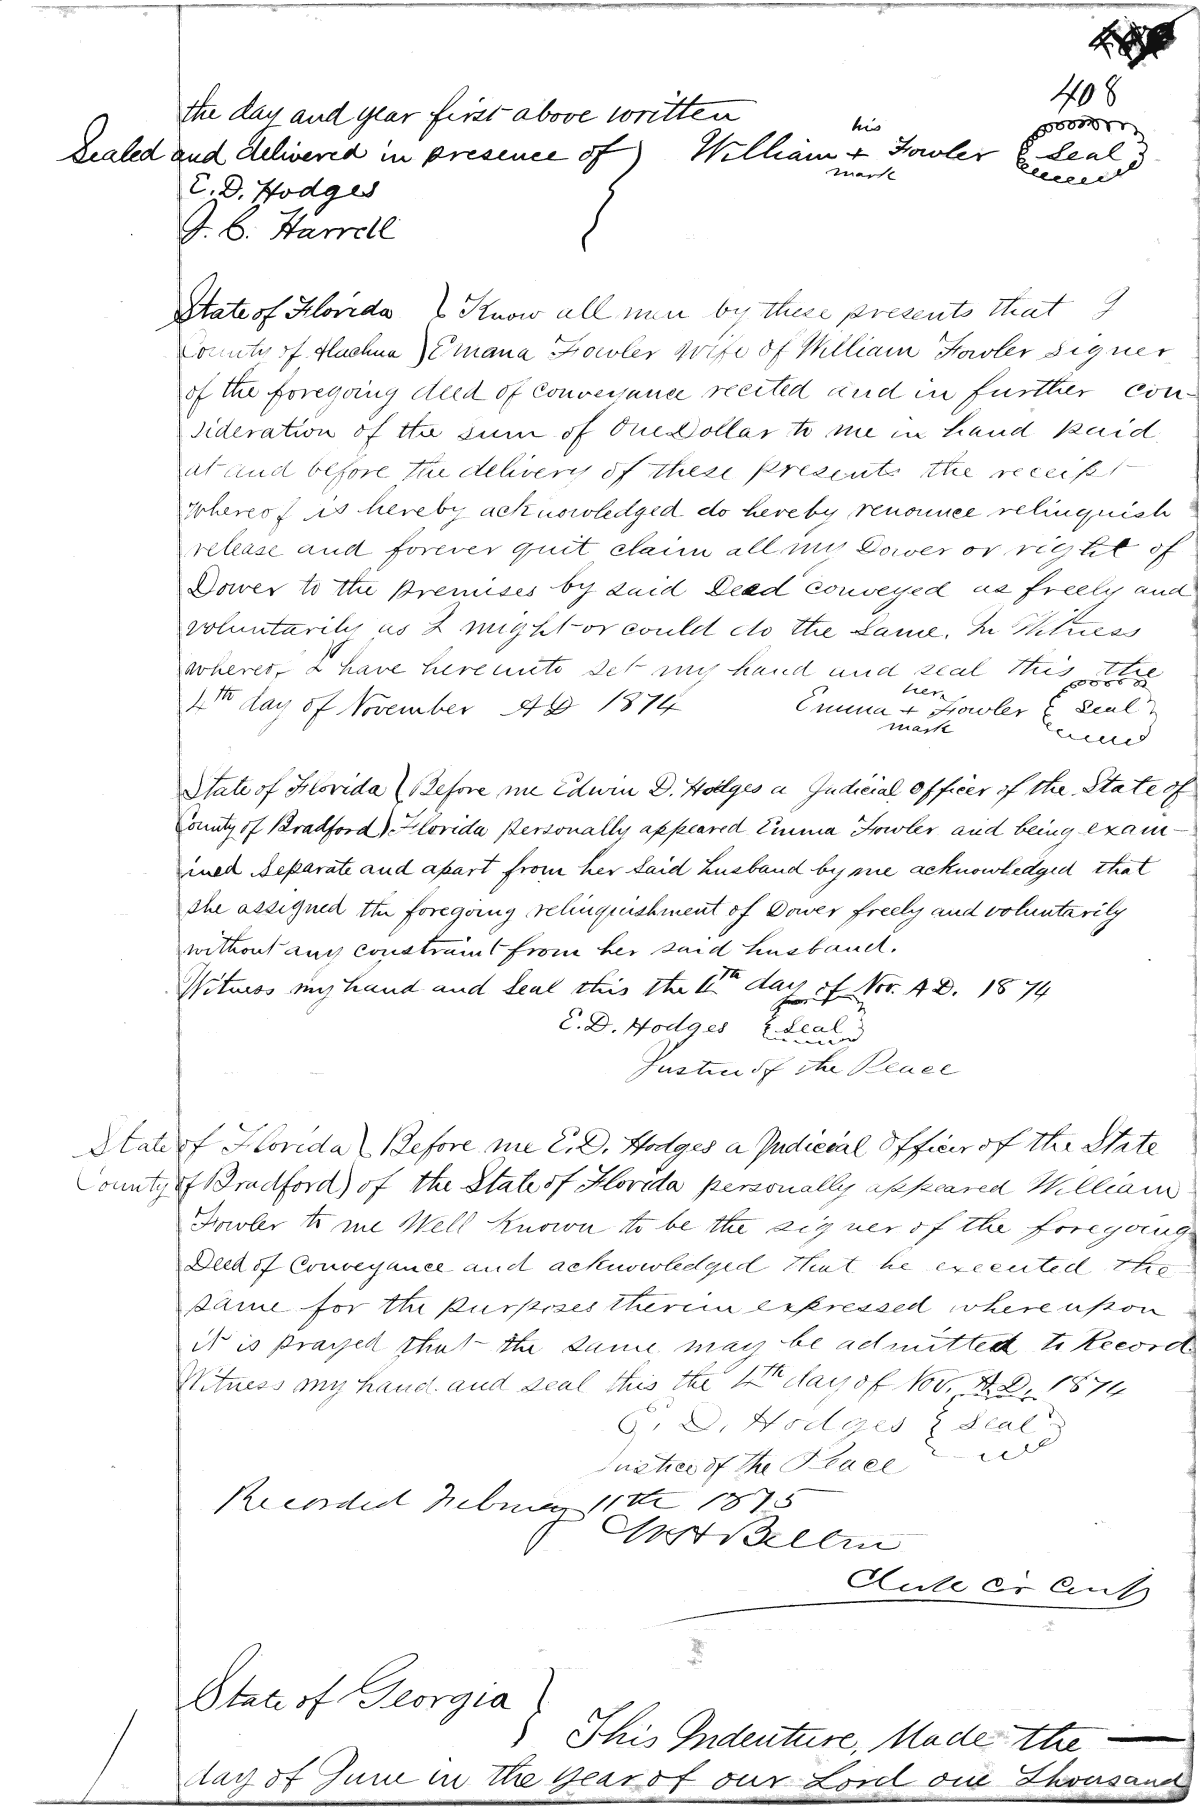 408
the day and year first above written
Sealed and delivered in presence of ) William + Fowler Seal
his
mark
E. D. Hodges
J. C. Harrell
State of Florida } Know all men by these presents that I
County of Aluchua } Emana Fowler wife of William Fowler signer
of the foregoing deed of conveyance recited and in further con-
sideration of the sum of One Dollar to me in hand paid
at and before the delivery of these presents the receipt
whereof is hereby acknowledged do hereby renounce relinquish
release and forever quit claim all my Dower or right of
Dower to the premises by said Deed conveyed as freely and
voluntarily as I might or could do the same. In Witness
whereof I have hereunto set my hand and seal this the
4th day of November AD 1874 Emma + Fowler Seal
her
mark
State of Florida } Before me Edwin D. Hodges a Judicial Officer of the State of
County of Bradford } Florida personally appeared Emma Fowler and being exam-
ined separate and apart from her said husband by me acknowledged that
she assigned the foregoing relinquishment of Dower freely and voluntarily
without any constraint from her said husband.
Witness my hand and seal this the 4th day of Nov. A D. 1874
E. D. Hodges {Seal}
Justice of the Peace
State of Florida } Before me E. D. Hodges a Judicial Officer of the State
County of Bradford } of the State of Florida personally appeared William
Fowler to me Well Known to be the signer of the foregoing
Deed of Conveyance and acknowledged that he executed the
same for the purposes therein expressed whereupon
it is prayed that the same may be admitted to Record
Witness my hand and seal this the 4th day of Nov. A.D. 1874
E. D. Hodges {Seal}
Justice of the Peace
Recorded February 11th 1875
Clerk Cir Court
State of Georgia }
This Indenture, Made the —
day of June in the year of our Lord one thousand